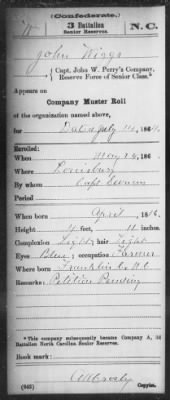 (Confederate.)
W 3 Battalion N. C.
Senior Reserves.
John Wiggs
Capt. John W. Perry's Company,
Reserve Force of Senior Class.*
Appears on
Company Muster Roll
of the organization named above,
for Dated July 14, 1864.
Enrolled:
When May 26, 186
Where Louisburg
By whom Capt
Period
When born April, 1816.
Height feet, 11 inches.
Complexion Light; hair Light
Eyes Blue; occupation Farmer
Where born Franklin Co N.C.
Remarks: Petition Pending
*This company subsequently became Company A, 3d
Battalion North Carolina Senior Reserves.
Book mark:
(645) Copyist.